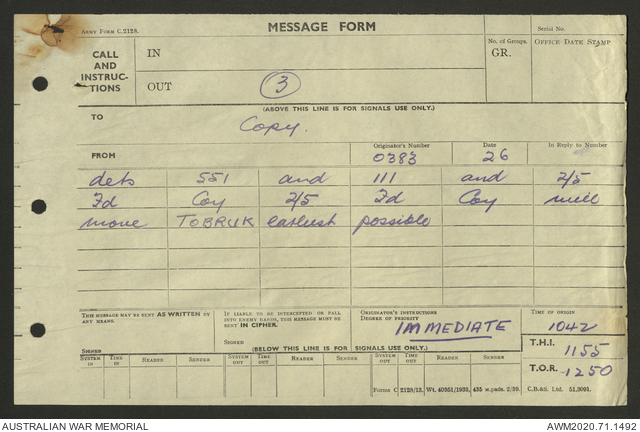 Army Form C.2128.
MESSAGE FORM
Serial No.
CALL AND INSTRUC-TIONS
IN
No. of Groups.
GR.
OFFICE DATE STAMP
OUT
3
(ABOVE THIS LINE IS FOR SIGNALS USE ONLY.)
TO
Copy.
FROM
Originator's Number
0383
Date
26
In Reply to Number
dets 551 and 111 and 2/5
Fd Coy 2/5 Fd Coy will
move TOBRUK earliest possible
THIS MESSAGE MAY BE SENT AS WRITTEN BY ANY MEANS.
SIGNED
IF LIABLE TO BE INTERCEPTED OR FALL INTO ENEMY HANDS, THIS MESSAGE MUST BE SENT IN CIPHER.
SIGNED
ORIGINATOR'S INSTRUCTIONS
DEGREE OF PRIORITY
IMMEDIATE
TIME OF ORIGIN
1042
T.H.I.
1155
T.O.R.
1250
(BELOW THIS LINE IS FOR SIGNALS USE ONLY.)
SYSTEM IN TIME IN READER SENDER SYSTEM OUT TIME OUT READER SENDER SYSTEM OUT TIME OUT READER SENDER
Forms C 2128/13. Wt. 40351/1930. 435 m.pads. 2/39. C.B.&S. Ltd. 51.3091.
AUSTRALIAN WAR MEMORIAL
AWM2020.71.1492